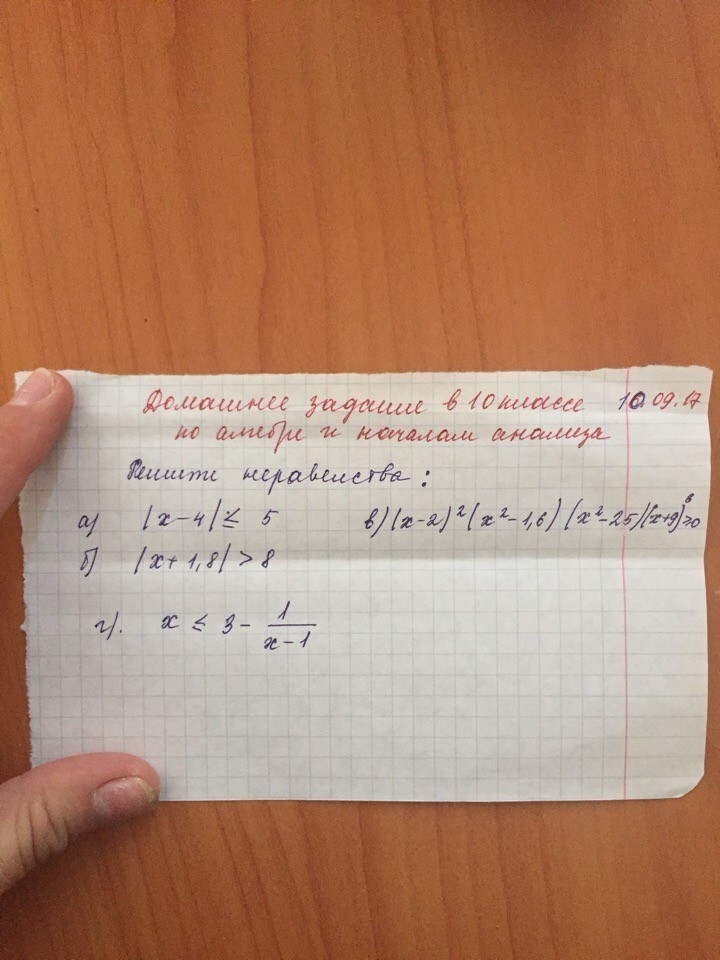 Домашнее задание в 10 классе 10.09.17
по алгебре и началам анализа
Решите неравенства:
а) |x-4| ≤ 5 в) (x-2)² (x²-1,6) (x²-25)(x+9)⁸≥0
б) |x+1,8| > 8
г). x ≤ 3 - 1/(x-1)